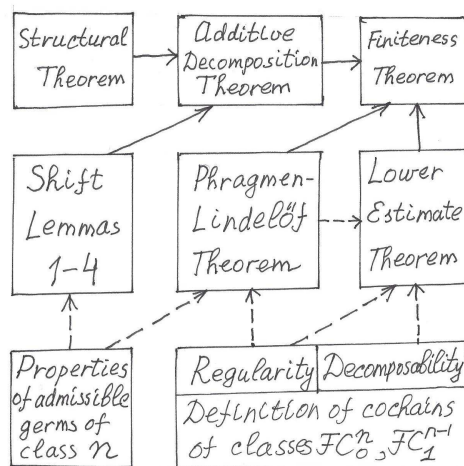 Structural
Theorem
Additive
Decomposition
Theorem
Finiteness
Theorem
Shift
Lemmas
1-4
Phragmen-
Lindelöf
Theorem
Lower
Estimate
Theorem
Properties
of admissible
germs of
class n
Regularity
Decomposability
Definition of cochains
of classes FC₀ⁿ, FC₁ⁿ⁻¹